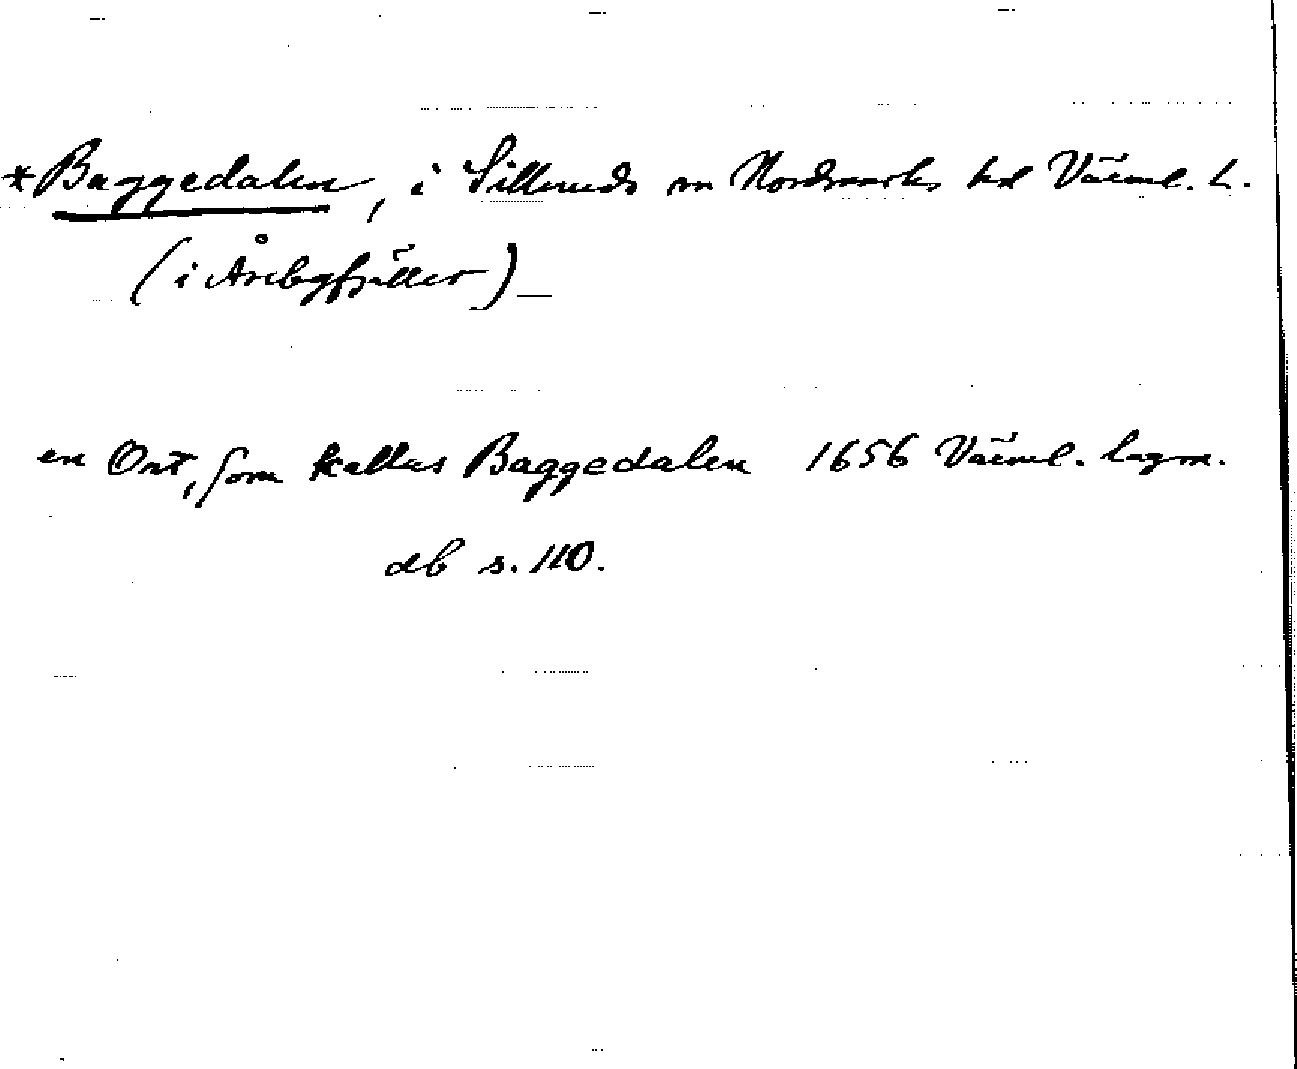 *Baggedalen, i Sillbruds sn Nordmarks hd Värml. L.
(i Åribyfjäller)
en Ort, som kallas Baggedalen 1656 Värml. lagm.
db s. 110.